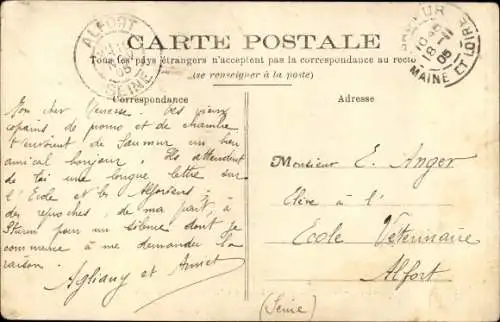 ALFORT
SEINE
05
CARTE POSTALE
SAUMUR
10 45
18 -11
05
MAINE ET LOIRE
Tous les pays étrangers n'acceptent pas la correspondance au recto
(se renseigner à la poste)
Correspondance
Mon cher . Tes vieux
copains de promo et de chambre
t'envoient de Saumur un bien
amical bonjour. Ils attendent
de toi une longue lettre sur
l'Ecole et les Alforiens
des reproches, de ma part, à
Sturm pour un silence dont je
commence à me demander la
raison.
Agliany et
Adresse
Monsieur E. Anger
Elève à l'
Ecole Vétérinaire
Alfort
(Seine)